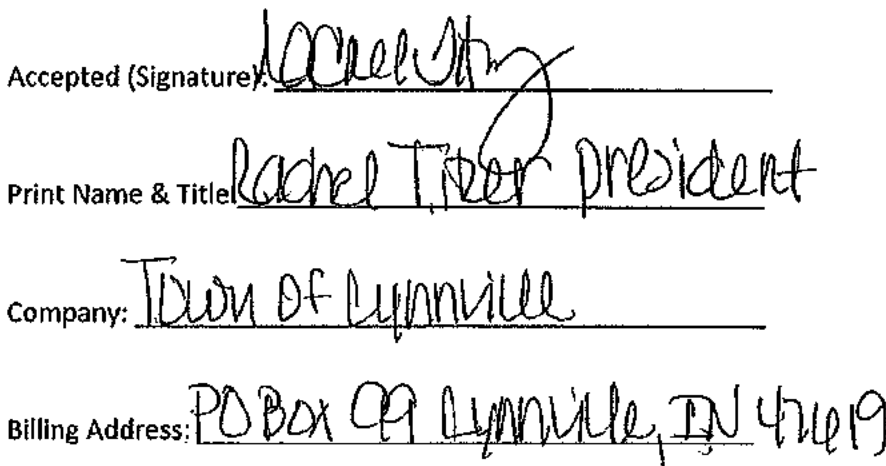 Accepted (Signature):
Print Name & Title Rachel Tizer president
Company: Town of Lynnville
Billing Address: PO Box 99 Lynnville, IN 47619